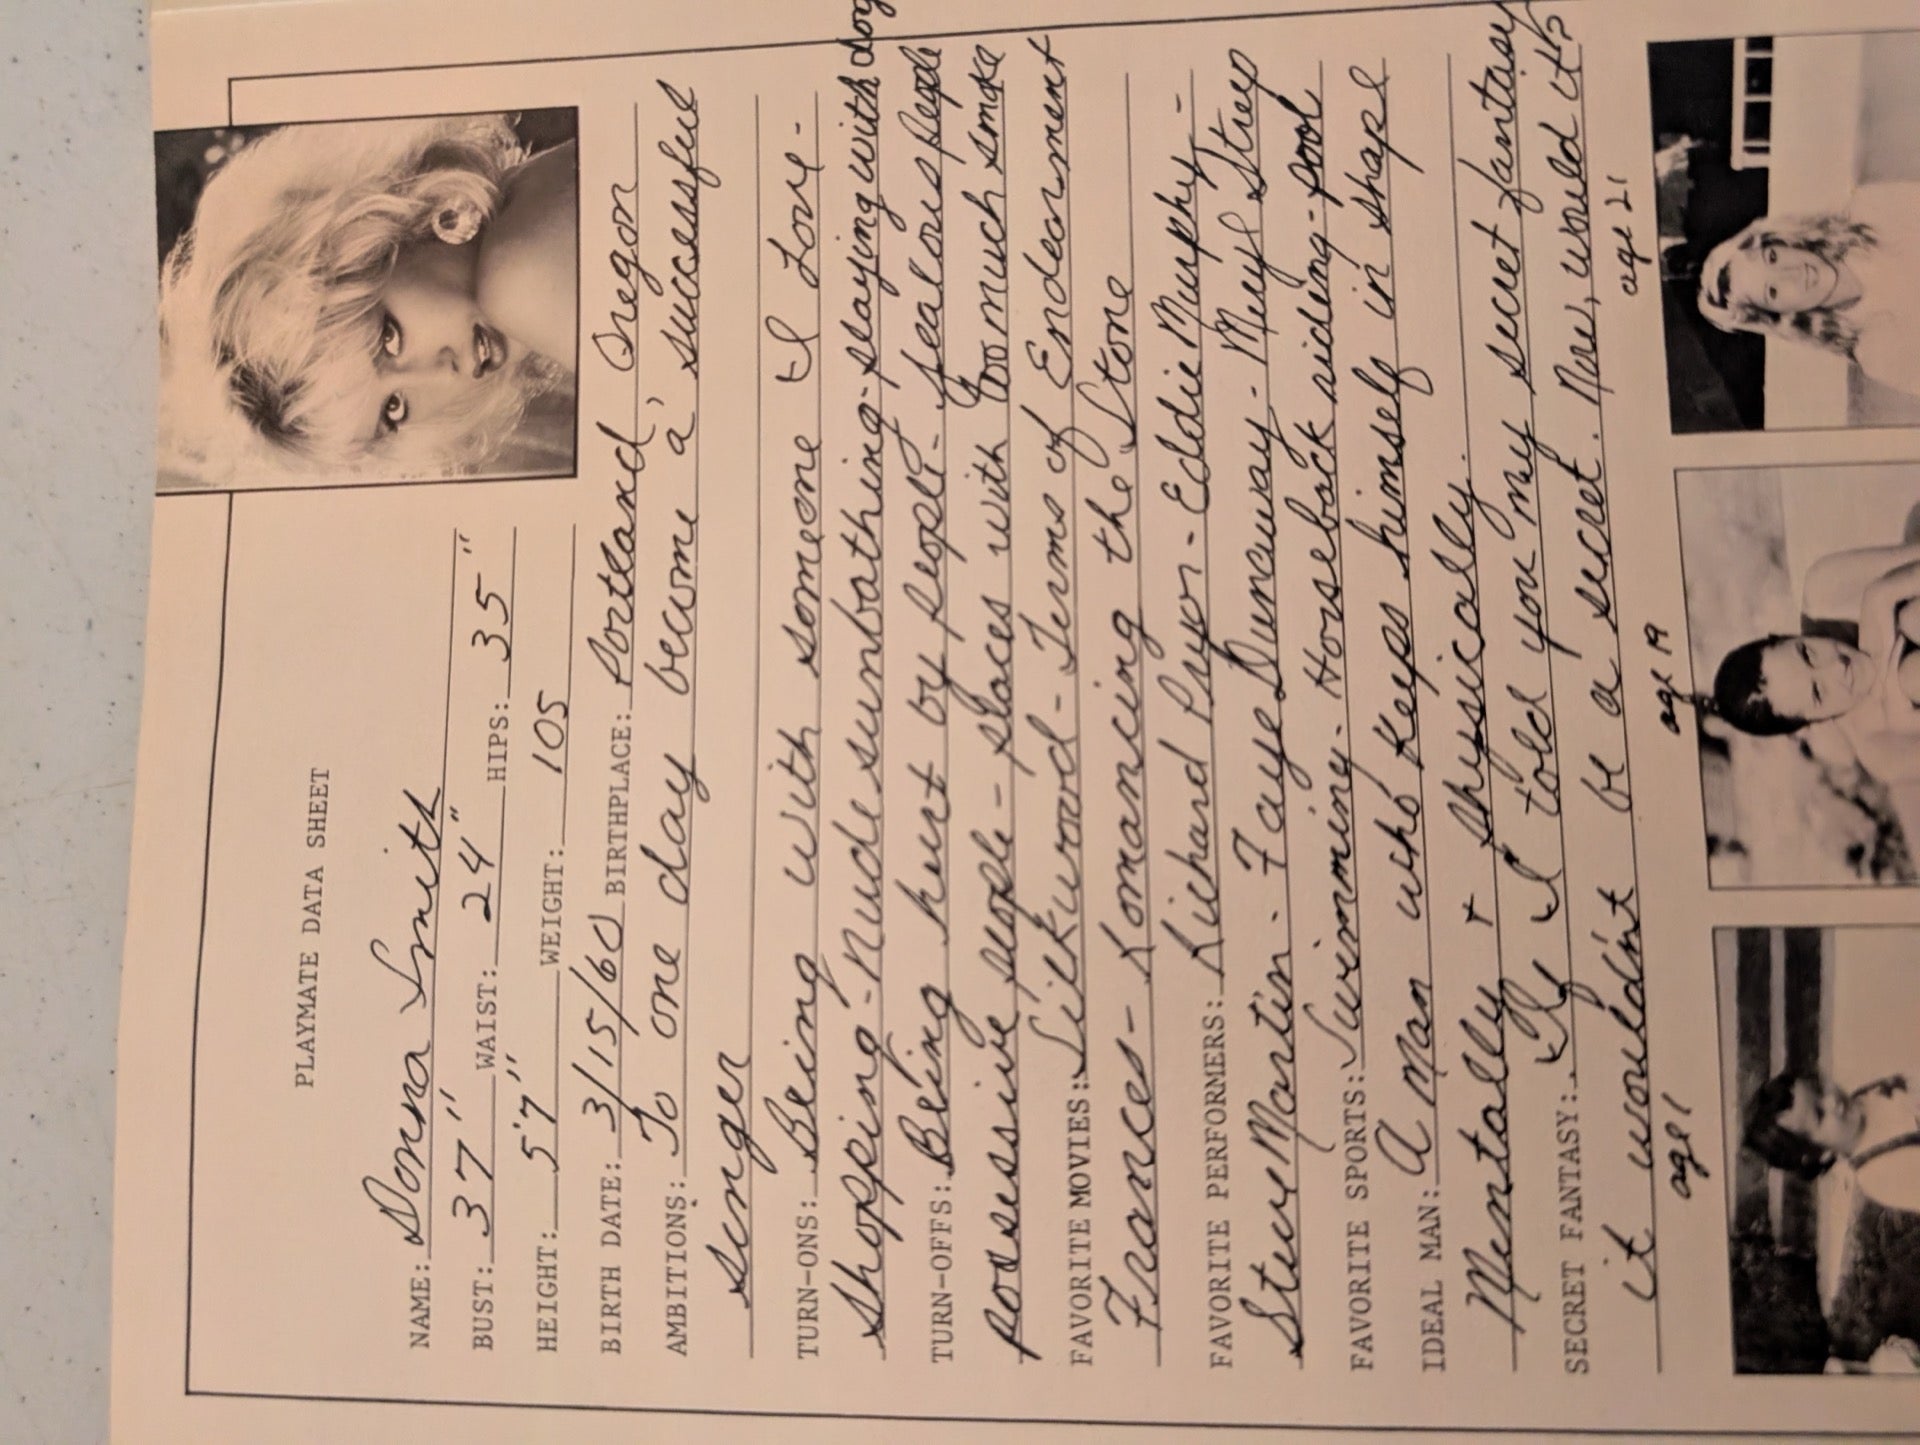 PLAYMATE DATA SHEET
NAME: Donna Smith
BUST: 37" WAIST: 24" HIPS: 35"
HEIGHT: 5'7" WEIGHT: 105
BIRTH DATE: 3/15/60 BIRTHPLACE: Portland, Oregon
AMBITIONS: To one day become a successful
singer
TURN-ONS: Being with someone I Love -
Shopping - Nude sunbathing - playing with dog
TURN-OFFS: Being hurt by people - jealous people
possessive people - places with too much smoke
FAVORITE MOVIES: Silkwood - Terms of Endearment
Frances - Romancing the Stone
FAVORITE PERFORMERS: Richard Pryor - Eddie Murphy -
Steve Martin - Faye Dunaway - Meryl Streep
FAVORITE SPORTS: Swimming - Horseback riding - pool
IDEAL MAN: A man who keeps himself in shape
Mentally + physically.
SECRET FANTASY: If I told you my secret fantasy
it would'nt be a secret. Now, would it?
age 1
age 19
age 21